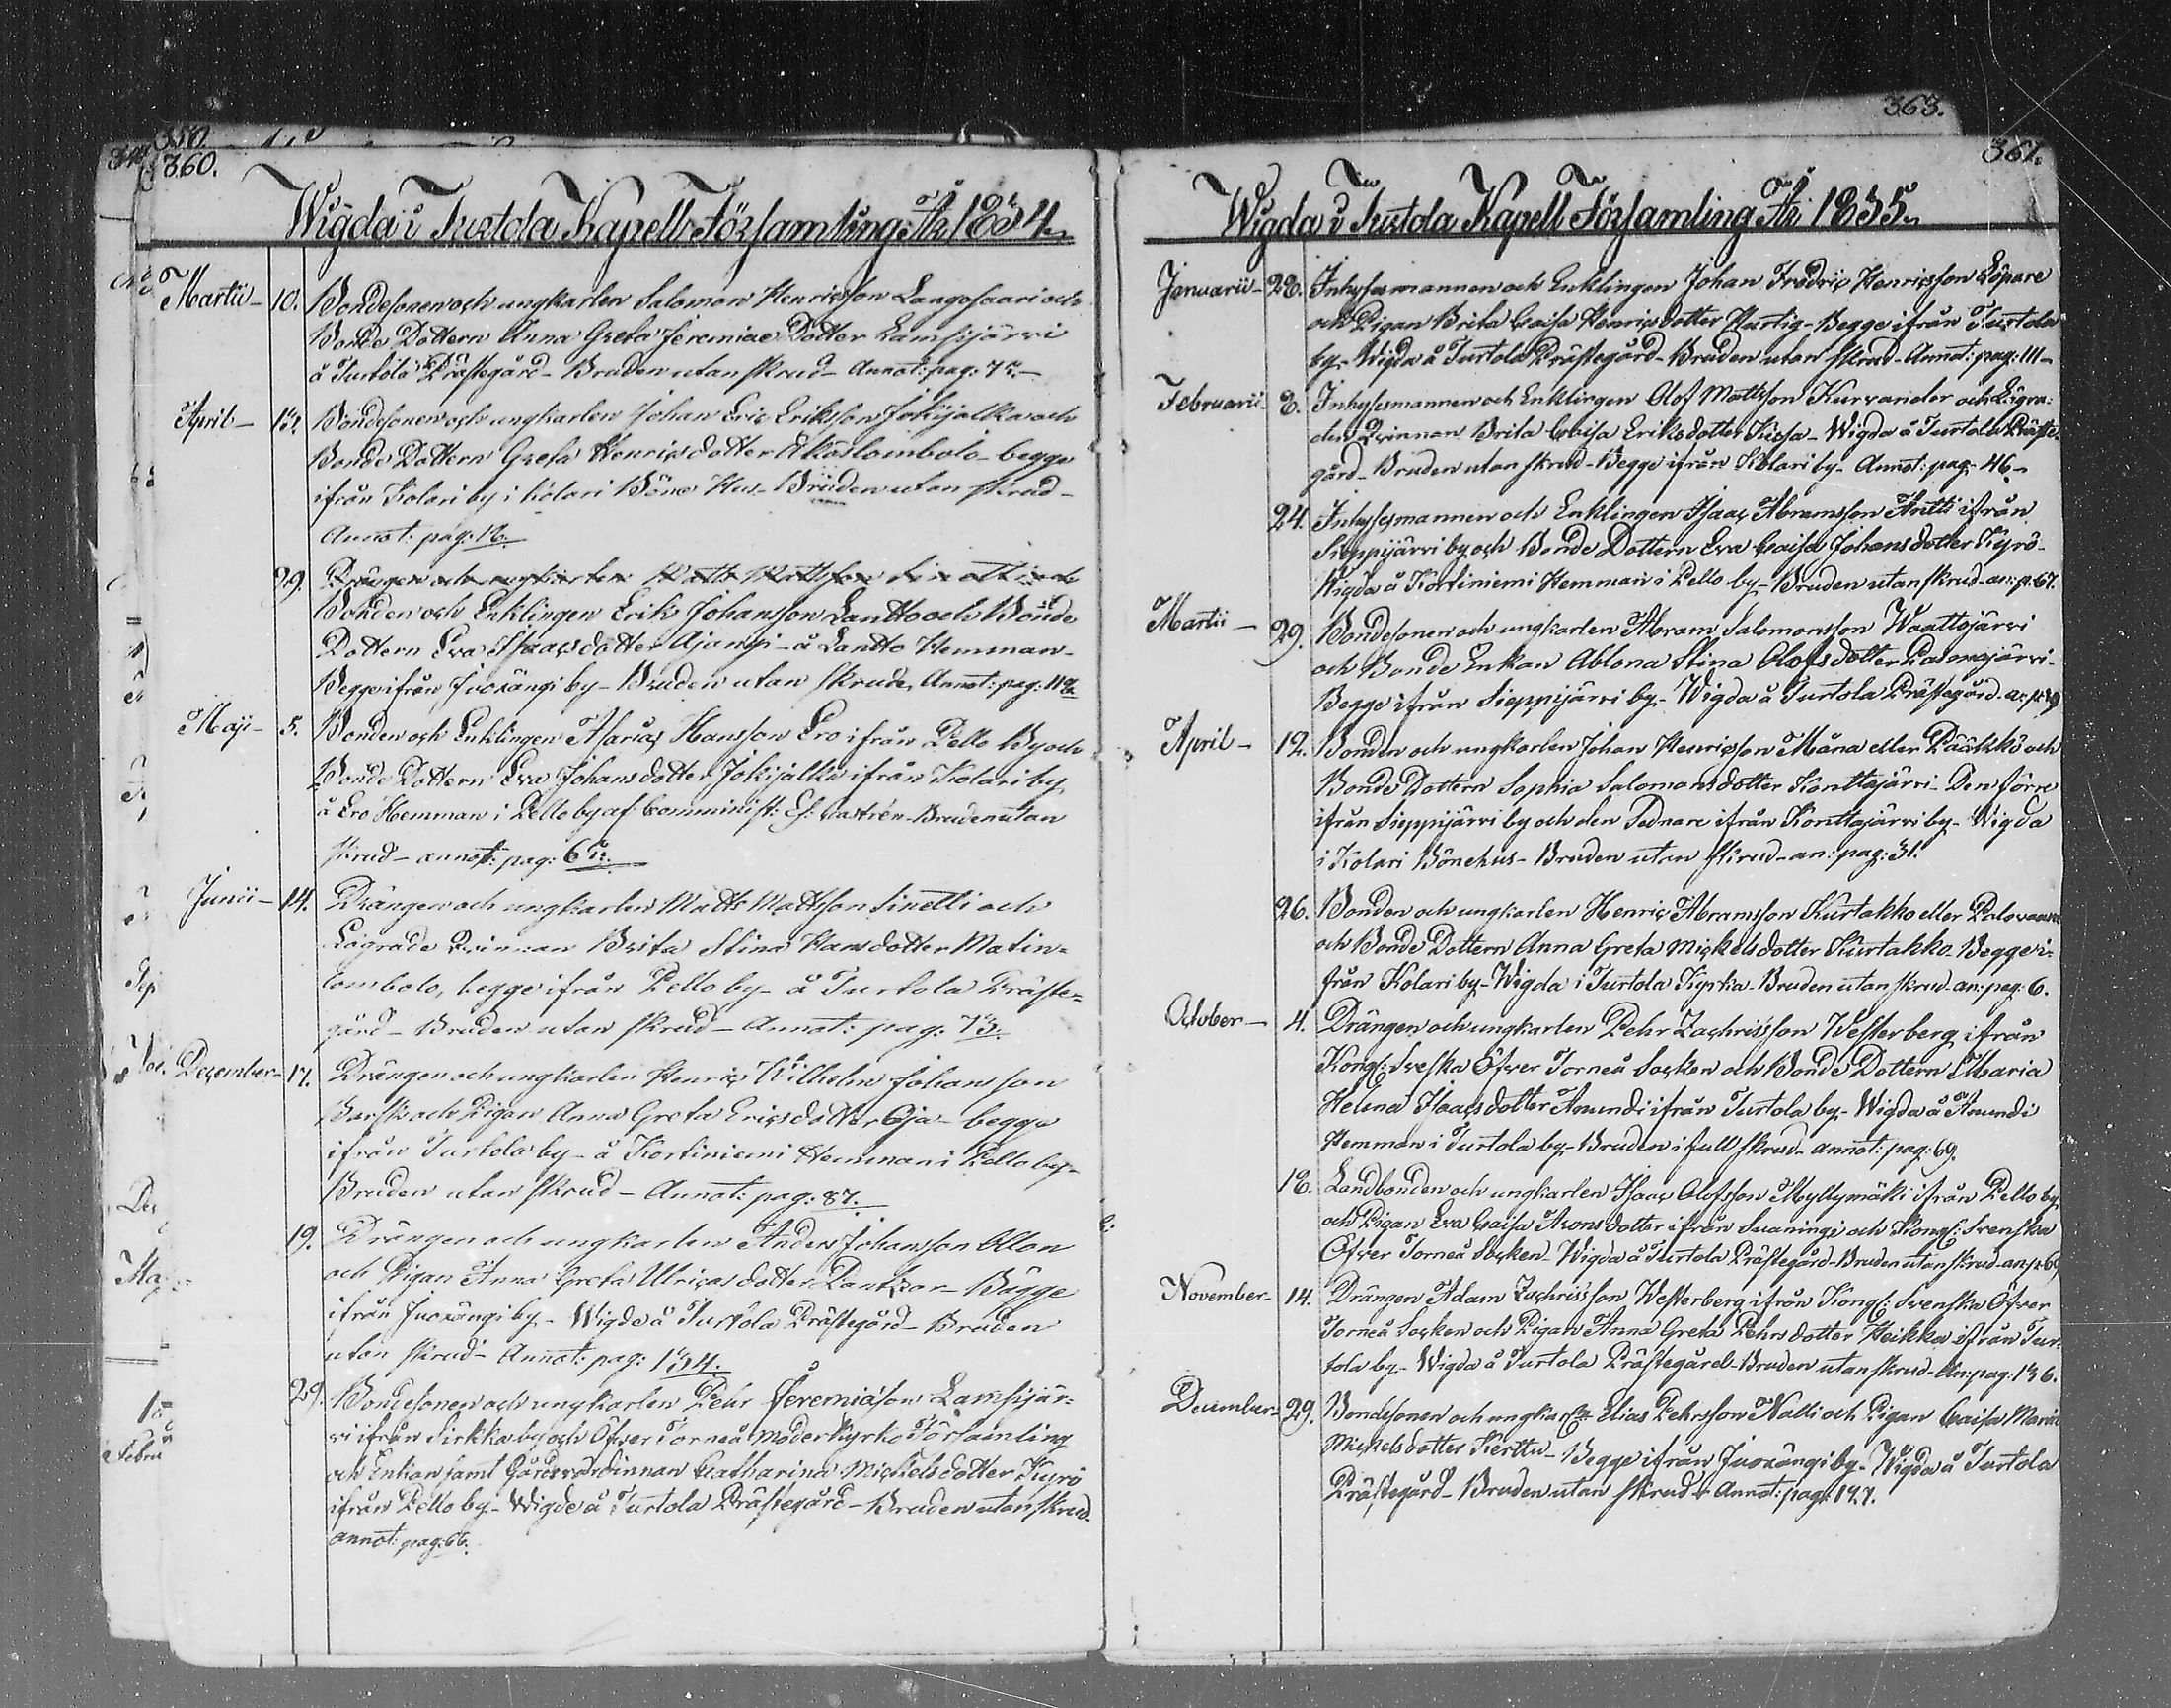 350.
360.
Wigda i Turtola Kapells Församling År 1834.
Martii - 10. Bondesonen och ungkarlen Salomon Henricsson Langosaari och
Bonde Dottern Anna Greta Jeremiae Dotter Lamsijärvi
å Turtola Prästegård - Bruden utan skrud - Annot: pag:
April - Bondesonen och ungkarlen Johan Eric Eriksson Jokijalka och
Bonde Dottern Greta Henricsdotter Äkäslombolo - begge
ifrån Kolari by i Kolari Böne Hus - Bruden utan skrud -
Annot: pag:
29. Drängen och ungkarlen Matts Mattsson Sinetti och
Bonden och Enklingen Erik Johansson Lantto och Bonde
Dottern Eva Isaacsdotter Ajangi - å Lantto Hemman -
Begge ifrån Juoxängi by - Bruden utan skrud, Annot: pag:
Maji - 5. Bonden och Enklingen Asarias Hansson Ero ifrån Pello By och
Bonde Dottern Eva Johansdotter Jokijalka ifrån Kolari by,
å Ero Hemman i Pello by af Comminist: Es: Castrén - Bruden utan
skrud - annot: pag:
Junii - 14. Drängen och ungkarlen Matts Mattsson Sinetti och
Lägrade Qvinnan Brita Stina Hansdotter Matin-
lombolo, begge ifrån Pello by - å Turtola Präste-
gård - Bruden utan skrud - Annot: pag: 73.
December - 17. Drängen och ungkarlen Henric Wilhelm Johansson
Barsk och Pigan Anna Greta Ericsdotter Oja - begge
ifrån Turtola by - å Kortiniemi Hemman i Pello by -
Bruden utan skrud - Annot: pag: 87.
19. Drängen och ungkarlen Anders Johansson Ollon
och Pigan Anna Greta Ulricasdotter Dantzar - Bägge
ifrån Juoxängi by - Wigde å Turtola Prästegård - Bruden
utan skrud - Annot: pag: 134.
29. Bondesonen och ungkarlen Pehr Jeremiæson Lamsijär-
vi ifrån Sirkka by och Öfver Torneå Moderkyrko Församling
och Enkan samt Gårdsvärdinnan Catharina Mickelsdotter Kyrö
ifrån Pello by - Wigde å Turtola Prästegård - Bruden utan skrud
annot: pag: 66.
363.
361.
Wigda i Turtola Kapell Församling År 1835.
Januarii - 22. Inhysesmannen och Enklingen Johan Fredric Henricsson Löpare
och Pigan Brita Caisa Henricsdotter Hurtig - Begge ifrån Turtola
by - Wigda å Turtola Prästegård - Bruden utan skrud - Annot: pag: 111 -
Februarii - 2. Inhysesmannen och Enklingen Olof Mattsson Kurvander och Lägra-
den Qvinnan Brita Caisa Eriksdotter Kiissa - Wigda å Turtola Präste-
gård - Bruden utan skrud - Begge ifrån Kolari by - Annot: pag: 46 -
24. Inhysesmannen och Enklingen Isaac Abramsson Antti ifrån
Sieppijärvi by och Bonde Dottern Eva Caisa Johansdotter Kyrö -
Wigda å Kortiniemi Hemman i Pello by - Bruden utan skrud - an: p: 67.
Martii - 29. Bondesonen och ungkarlen Abram Salomonsson Waattojärvi
och Bonde Enkan Ablona Stina Olofsdotter Pasmajärvi -
Begge ifrån Sieppijärvi by - Wigda å Turtola Prästegård - an: p:
April - 12. Bonden och ungkarlen Johan Henricsson Mäna eller Pääkkö och
Bonde Dottern Sophia Salomonsdotter Konttajärvi - Den förre
ifrån Sieppijärvi by och den Sednare ifrån Konttajärvi by - Wigda
i Kolari Bönehus - Bruden utan skrud - an: pag: 31.
26. Bonden och ungkarlen Henric Abramsson Kurtakko eller Palovaara
och Bonde Dottern Anna Greta Mickelsdotter Kurtakko - Begge i-
från Kolari by - Wigda i Turtola Kyrka - Bruden utan skrud - an: pag: 6.
October - 4. Drängen och ungkarlen Pehr Zachrisson Westerberg ifrån
Kongl: Sveska Öfver Torneå Socken och Bonde Dottern Maria
Helena Isaacsdotter Amundi ifrån Turtola by - Wigda å Amundi
Hemman i Turtola by - Bruden i full skrud - annot: pag: 69.
Landbonden och ungkarlen Isaac Olofsson Myllymäki ifrån Pello by
och Pigan Eva Caisa Aronsdotter ifrån Svaningi och Kongl: Svenska
Öfver Torneå Socken - Wigda å Turtola Prästegård - Bruden utan skrud - an: p:
November - 14. Drängen Adam Zachrisson Westerberg ifrån Kongl: Svenska Öfver
Torneå Socken och Pigan Anna Greta Pehrsdotter Heikka ifrån Tur-
tola by - Wigda å Turtola Prästegård - Bruden utan skrud - An: pag: 136.
December - 29. Bondesonen och ungkarlen Elias Pehrsson Nalli och Pigan Caisa Maria
Mickelsdotter Kerttu - Begge ifrån Juoxängi by - Wigda å Turtola
Prästegård - Bruden utan skrud - Annot: pag: